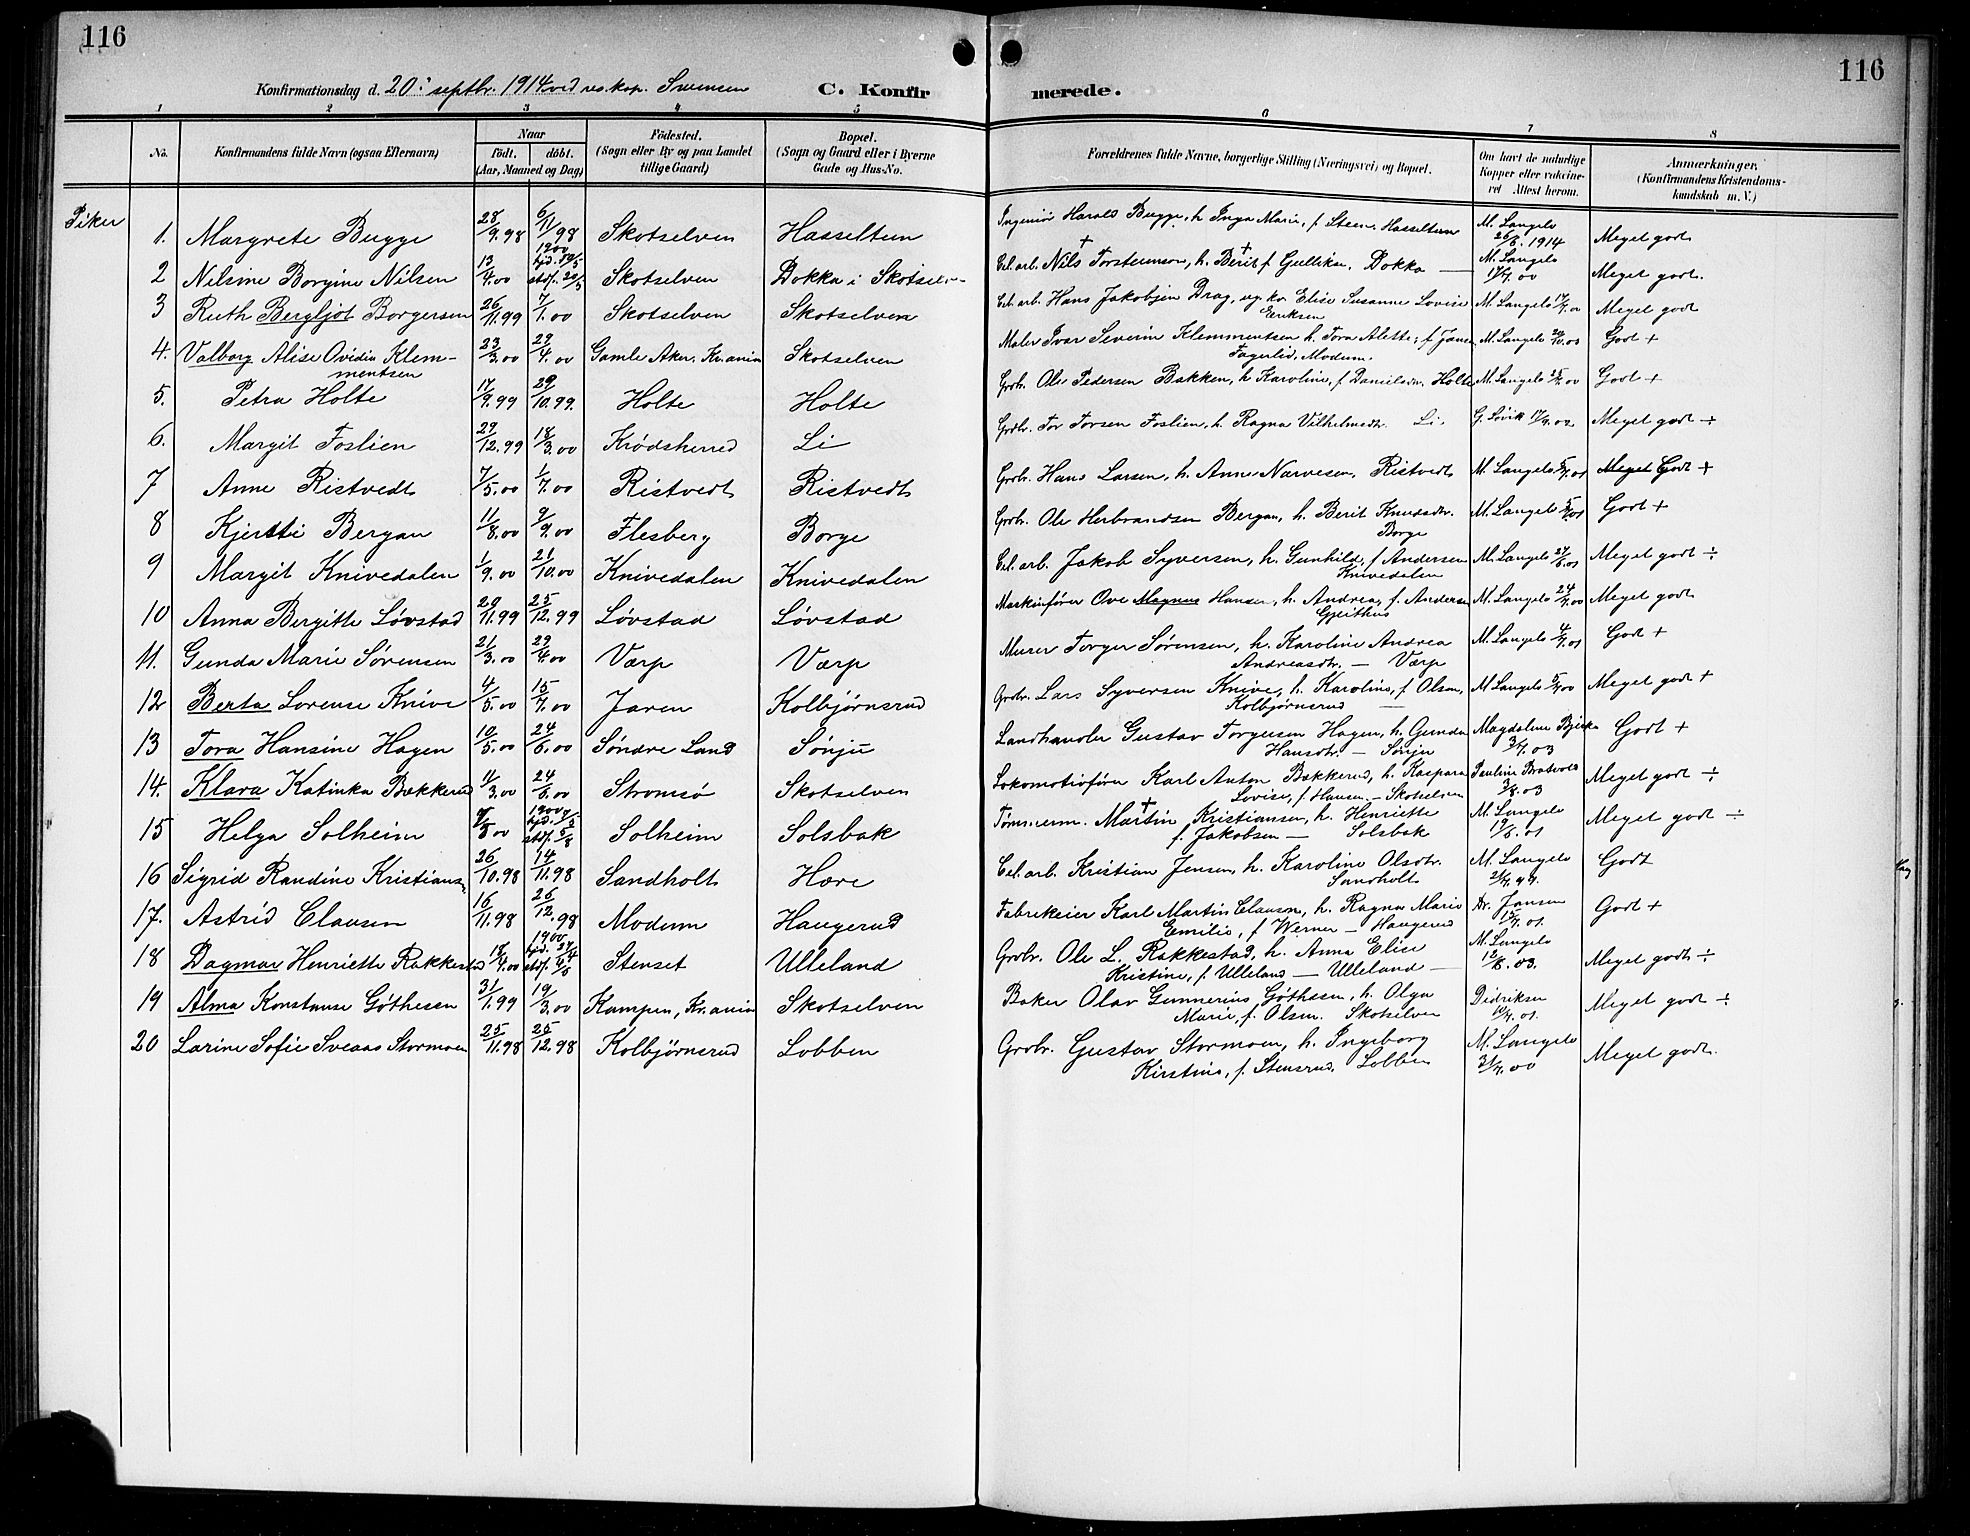 116
116
Konfirmationsdag d. 20: septbr. 1914 ved res. kap. Svensen
C. Konfirmerede.
1 2 3 4 5 6 7 8
No. Konfirmandens fulde Navn (ogsaa Efternavn) Naar Födt. döbt. (Aar, Maaned og Dag) Födested. (Sogn eller By og paa Landet tillige Gaard) Bopæl. (Sogn og Gaard eller i Byerne Gade og Hus-No. Forældrenes fulde Navne, borgerlige Stilling (Næringsvei) og Bopæl. Om havt de naturlige Kopper eller vakcineret Attest herom. Anmærkninger, (Konfirmandens Kristendomskundskab m. V.)
Piker
1. Margrete Bugge 28/9.98 6/11/98 Skotselven Hasseltun Ingeniør Harald Bugge, h. Inga Marie, f. Steen. Hasseltun M. Langelo 26/8. 1914 Meget godt
2 Nilsine Borgine Nilsen 13/4.00 1900 hjd. stdf. 20/5 Skotselven Dokka i Skotselv. Cel. arb. Nils Torstensen, h. Berit f. Gulliksn. Dokka — M. Langelo 17/7.00 Meget godt.
3 Ruth Bergljot Borgersen 26/11.99 7/1.00 Skotselven Skotselven Cel. arb. Hans Jakobsen Drag, ug. kv. Elise Susanne Lovise Eriksen M. Langelo Meget godt
4. Valborg Alise Ovidia Klemmentsen 23/3.00 29/4.00 Gamle Aker. Kr.ania Skotselven Maler Ivar Severin Klemmentsen h. Tora Alette, f. Jansen Fagerlid. Modum. M. Langelo Godt +
5. Petra Holte 17/9.99 29/10.99. Holte Holte Grdbr. Ole Pedersen Bakken, h. Karoline, f. Danielsdr. Holte M. Langelo Godt +
6. Margit Foslien 29/12.99 18/3.00 Krødsherred Li Grdbr. Tor Torsen Foslien, h. Ragna Vilhelmsdtr. Li. G. Løvik Meget godt ÷
7 Anne Ristvedt 7/5.00 1/7.00 Ristvedt Ristvedt Grdbr. Hans Larsen, h. Anne Narvesen. Ristvedt M. Langelo Meget Godt +
8 Kjersti Bergan 11/8.00 2/9.00 Flesberg Borge Grdbr. Ole Herbrandsen Bergan, h. Berit Knudsdtr. Borge M. Langelo Godt +
9 Margit Knivedalen 1/9.00 21/10.00 Knivedalen Knivedalen Cel. arb. Jakob Syversen, h. Gunhild, f. Andersen Knivedalen M. Langelo Meget godt ÷
10 Anna Bergitte Løvstad 20/11.99 25/12.99 Løvstad Løvstad Maskinfører Ove Magnus Hansen, h. Andrea, f. Andersen Gjeithus M. Langelo Meget godt
11. Gunda Marie Sørensen 21/3.00 29/4.00 Værp Værp Murer Torger Sørensen, h. Karoline Andrea Andreasdtr. — Værp M. Langelo Godt +
12 Berta Lorense Knive 4/5.00 15/7.00 Jaren Kolbjørnsrud Grdbr. Lars Syversen Knive, h. Karoline, f. Olsen, Kolbjørnsrud M. Langelo Meget godt +
13 Tora Hansine Hagen 10/5.00 24/6.00 Søndre Land Sønju Landhandler Gustav Torgersen Hagen, h. Gunda Hansdtr. — Sønju Magdalene Bjerke 3/7.03 Godt +
14. Klara Katinka Bækkerud 1/3.00 24/6.00 Strømsø Skotselven Lokomotivfører Karl Anton Bækkerud, h. Kaspara Lovise, f. Hansen. — Skotselven Pauline Bratvold Meget godt ÷
15 Helga Solheim 1900 Solheim Solsbak Tømmerm. Martin Kristiansen, h. Henriette f. Jakobsen — Solsbak M. Langelo Meget godt ÷
16 Sigrid Randine Kristians. 26/10.98 14/11.98 Sandholt Hære Cel. arb. Kristian Jensen, h. Karoline Olsdtr. Sandholt M. Langelo Godt
17. Astrid Clausen 16/11.98 26/12.98 Modum Haugerud Fabrikeier Karl Martin Clausen, h. Ragna Marie Emilie, f. Werner — Haugerud Dr. Jansen Godt +
18 Dagmar Henriette Rakkestad 18/4.00 1900 Stenset Ulleland Grdbr. Ole L. Rakkestad, h. Anna Elise Kristine, f. Ulleland — Ulleland — M. Langelo 12/8.03. Meget godt ÷
19 Alma Konstanse Gøthesen 31/1.99 19/3.00 Kampen, Kr.ania Skotselven Baker Olav Gunnerius Gøthesen, h. Olga Marie, f. Olsen. Skotselven Didriksen Meget godt ÷
20 Larine Sofie Sveaas Stormoen 25/11.98 25/12.98 Kolbjørnsrud Lobben Grdbr. Gustav Stormoen, h. Ingeborg Kirstine, f. Stensrud. Lobben M. Langelo 31/7.00 Meget godt.